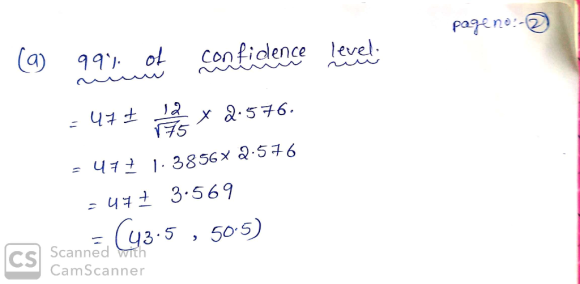 page no:- 2
(a) 99%. of confidence level.
= 47 ± 12/√75 × 2.576.
= 47 ± 1.3856 × 2.576
= 47 ± 3.569
= (43.5 , 50.5)
CS Scanned with
CamScanner